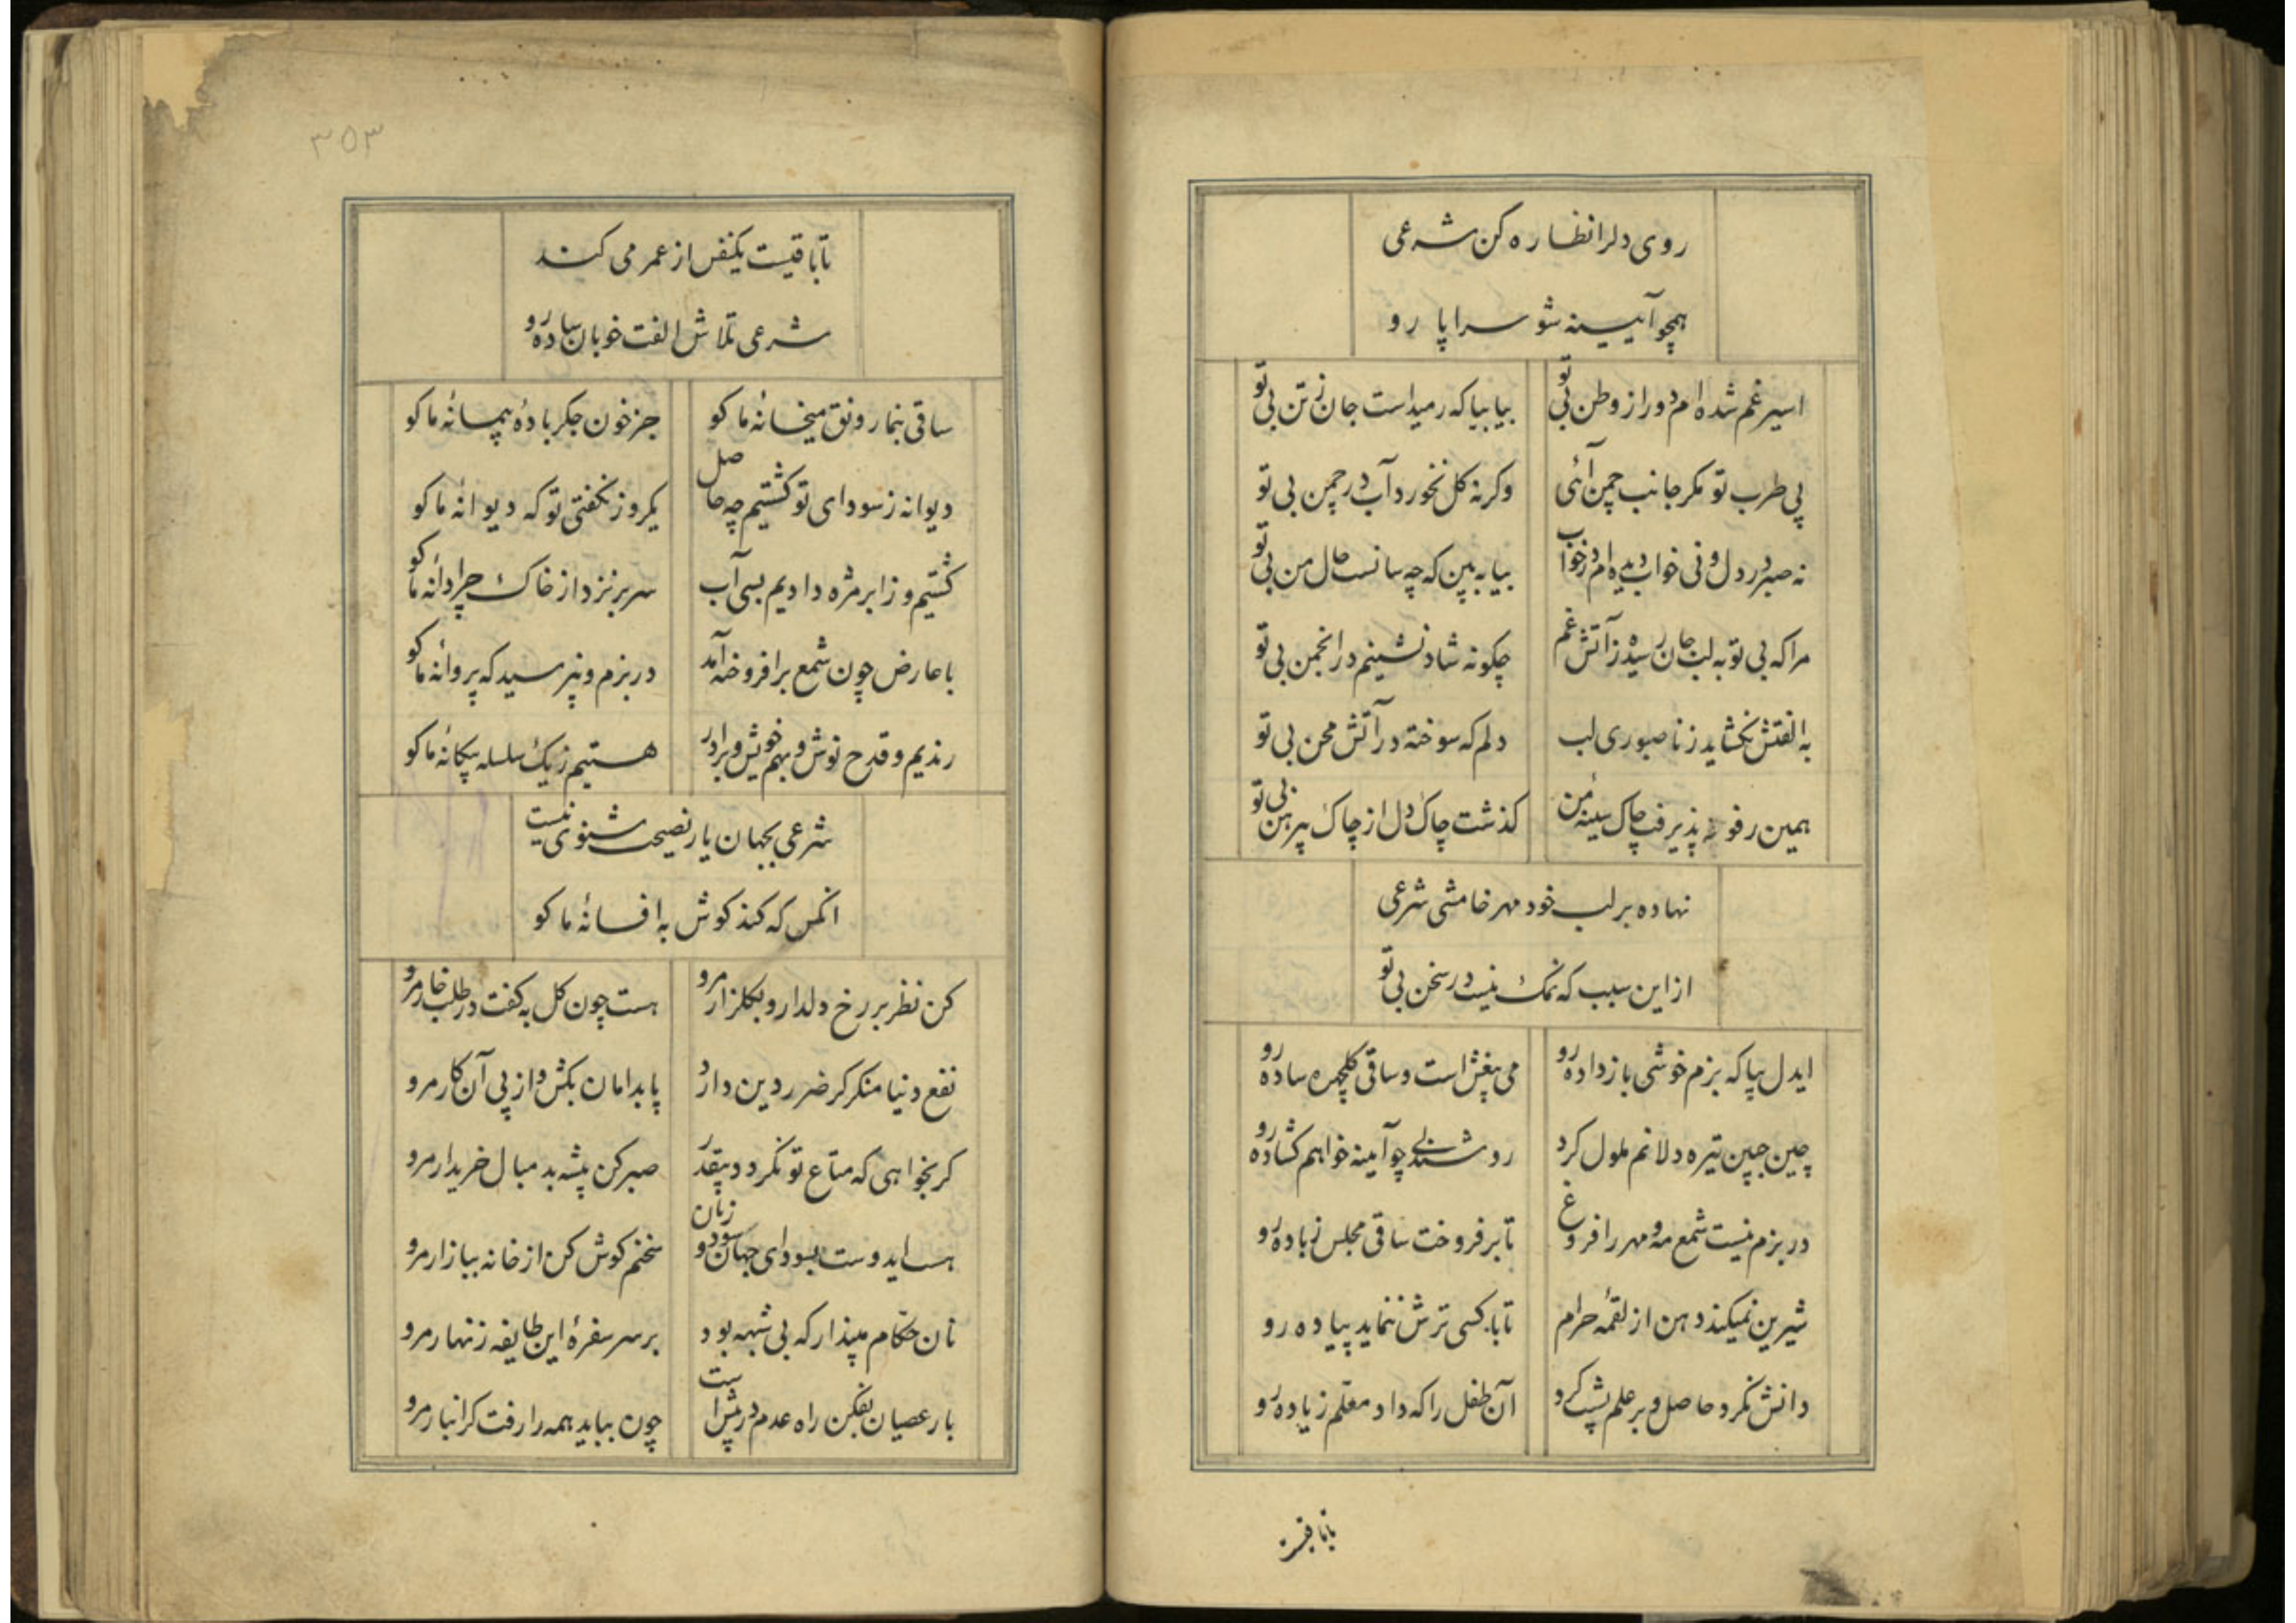 روی دلرا نظاره کن شرعی
همچو آیینه شو سراپا رو
اسیر غم شده‌ام دور از وطن بی تو
بیا بیا که رمیداست جان ز تن بی تو
پی طرب تو مکر جانب چمن آئی
وکرنه کل نخورد آب در چمن بی تو
نه صبر در دل و نی خواب دیده‌ام در خواب
بیا به بین که چه سانست حال من بی تو
مرا که بی تو به لب جان رسیده ز آتش غم
چکونه شاد نشینم در انجمن بی تو
به الفتش نکشاید ز نا صبوری لب
دلم که سوخته در آتش محن بی تو
همین رفو پذیرفت چاک سینهٔ من
کذشت چاک دل از چاک پیرهن بی تو
نهاده بر لب خود مهر خامشی شرعی
از این سبب که نمک نیست در سخن بی تو
ایدل بیا که بزم خوشی باز داده رو
می بیغش است و ساقی کلچهره ساده رو
چین جبین تیره دلانم ملول کرد
رو چو آیینه خواهم کشاده رو
در بزم نیست شمع مه و مهر را فروغ
تا بر فروخت ساقی مجلس ز باده رو
شیرین نمیکند دهن از لقمهٔ حرام
تا با کسی ترش ننماید پیاده رو
دانش نکرد حاصل و بر علم پشت کرد
آن طفل را که داد معلم زیاده رو
تا باقیست
۳۵۳
تا باقیست یکنفس از عمر می کند
شرعی تلاش الفت خوبان ساده رو
ساقی بنما رونق میخانهٔ ما کو
جز خون جکر بادهٔ پیمانهٔ ما کو
دیوانه ز سودای تو کشتیم چه حاصل
یکروز نکفتی تو که دیوانهٔ ما کو
کشتیم و ز ابر مژه دادیم بسی آب
سر بر نزد از خاک چرا دانهٔ ما کو
با عارض چون شمع بر افروخته آمد
در بزم و نپرسید که پروانهٔ ما کو
رندیم و قدح نوش و بهم خویش و برادر
هستیم ز یک سلسله بیکانهٔ ما کو
شرعی بجهان یار نصیحت شنوی نیست
انکس که کند کوش به افسانهٔ ما کو
کن نظر بر رخ دلدار و بکلزار مرو
هست چون کل به کفت در طلب خار مرو
نفع دنیا منکر کر ضرر دین دارد
پا بدامان بکش و از پی آن کار مرو
کر بخواهی که متاع تو نکردد بیقدر
صبر کن پیشه بدمبال خریدار مرو
هست ایدوست بسودای جهان سود و زیان
سخنم کوش کن از خانه ببازار مرو
نان حکام مپندار که بی شبهه بود
بر سر سفرهٔ این طایفه زنهار مرو
بار عصیان بفکن راه عدم در پیش است
چون بباید همه را رفت کرانبار مرو